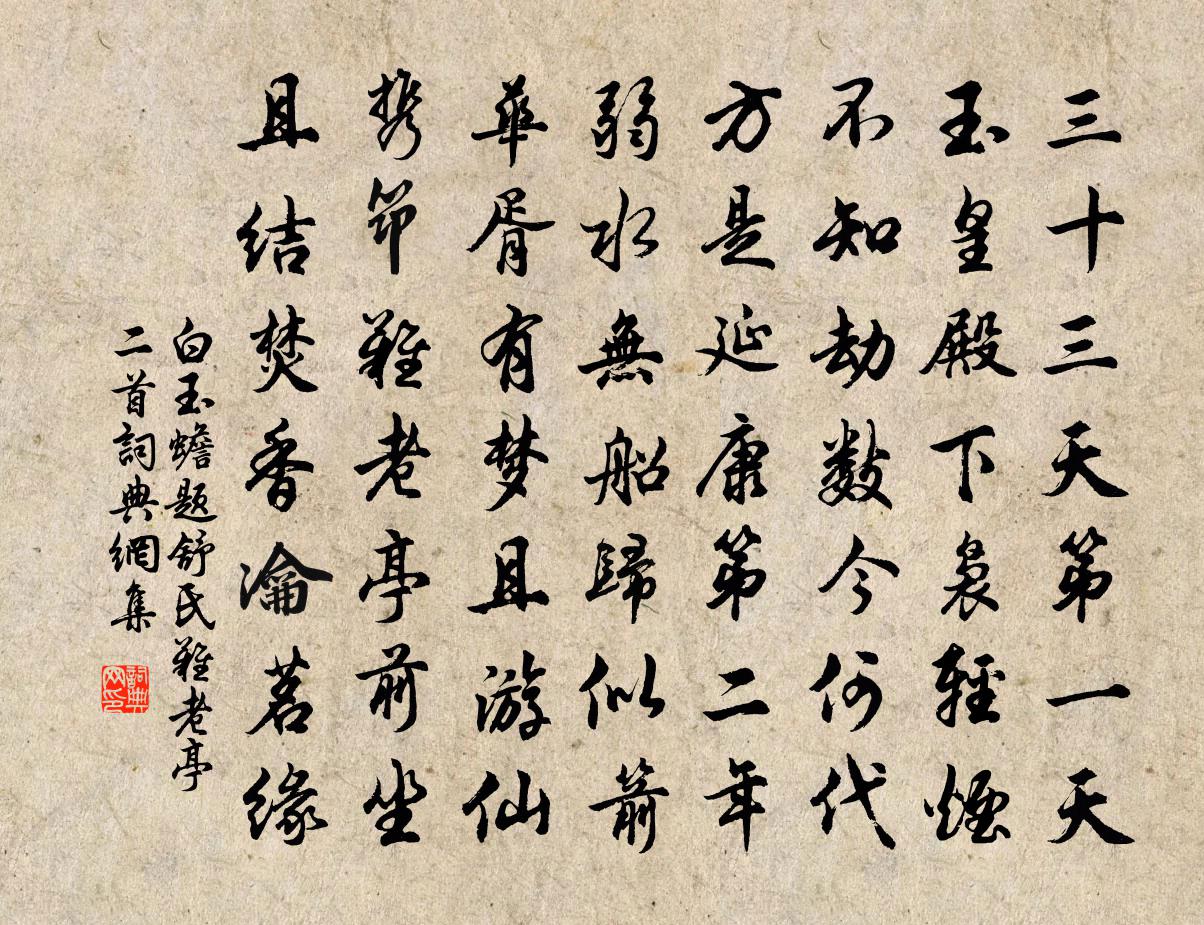 三十三天第一天
玉皇殿下袅輕煙
不知劫數今何代
方是延康第二年
弱水無船歸似箭
華胥有梦且游仙
携笻難老亭前坐
且结焚香瀹茗缘
白玉蟾题舒氏難老亭
二首詞典網集
詞典网印